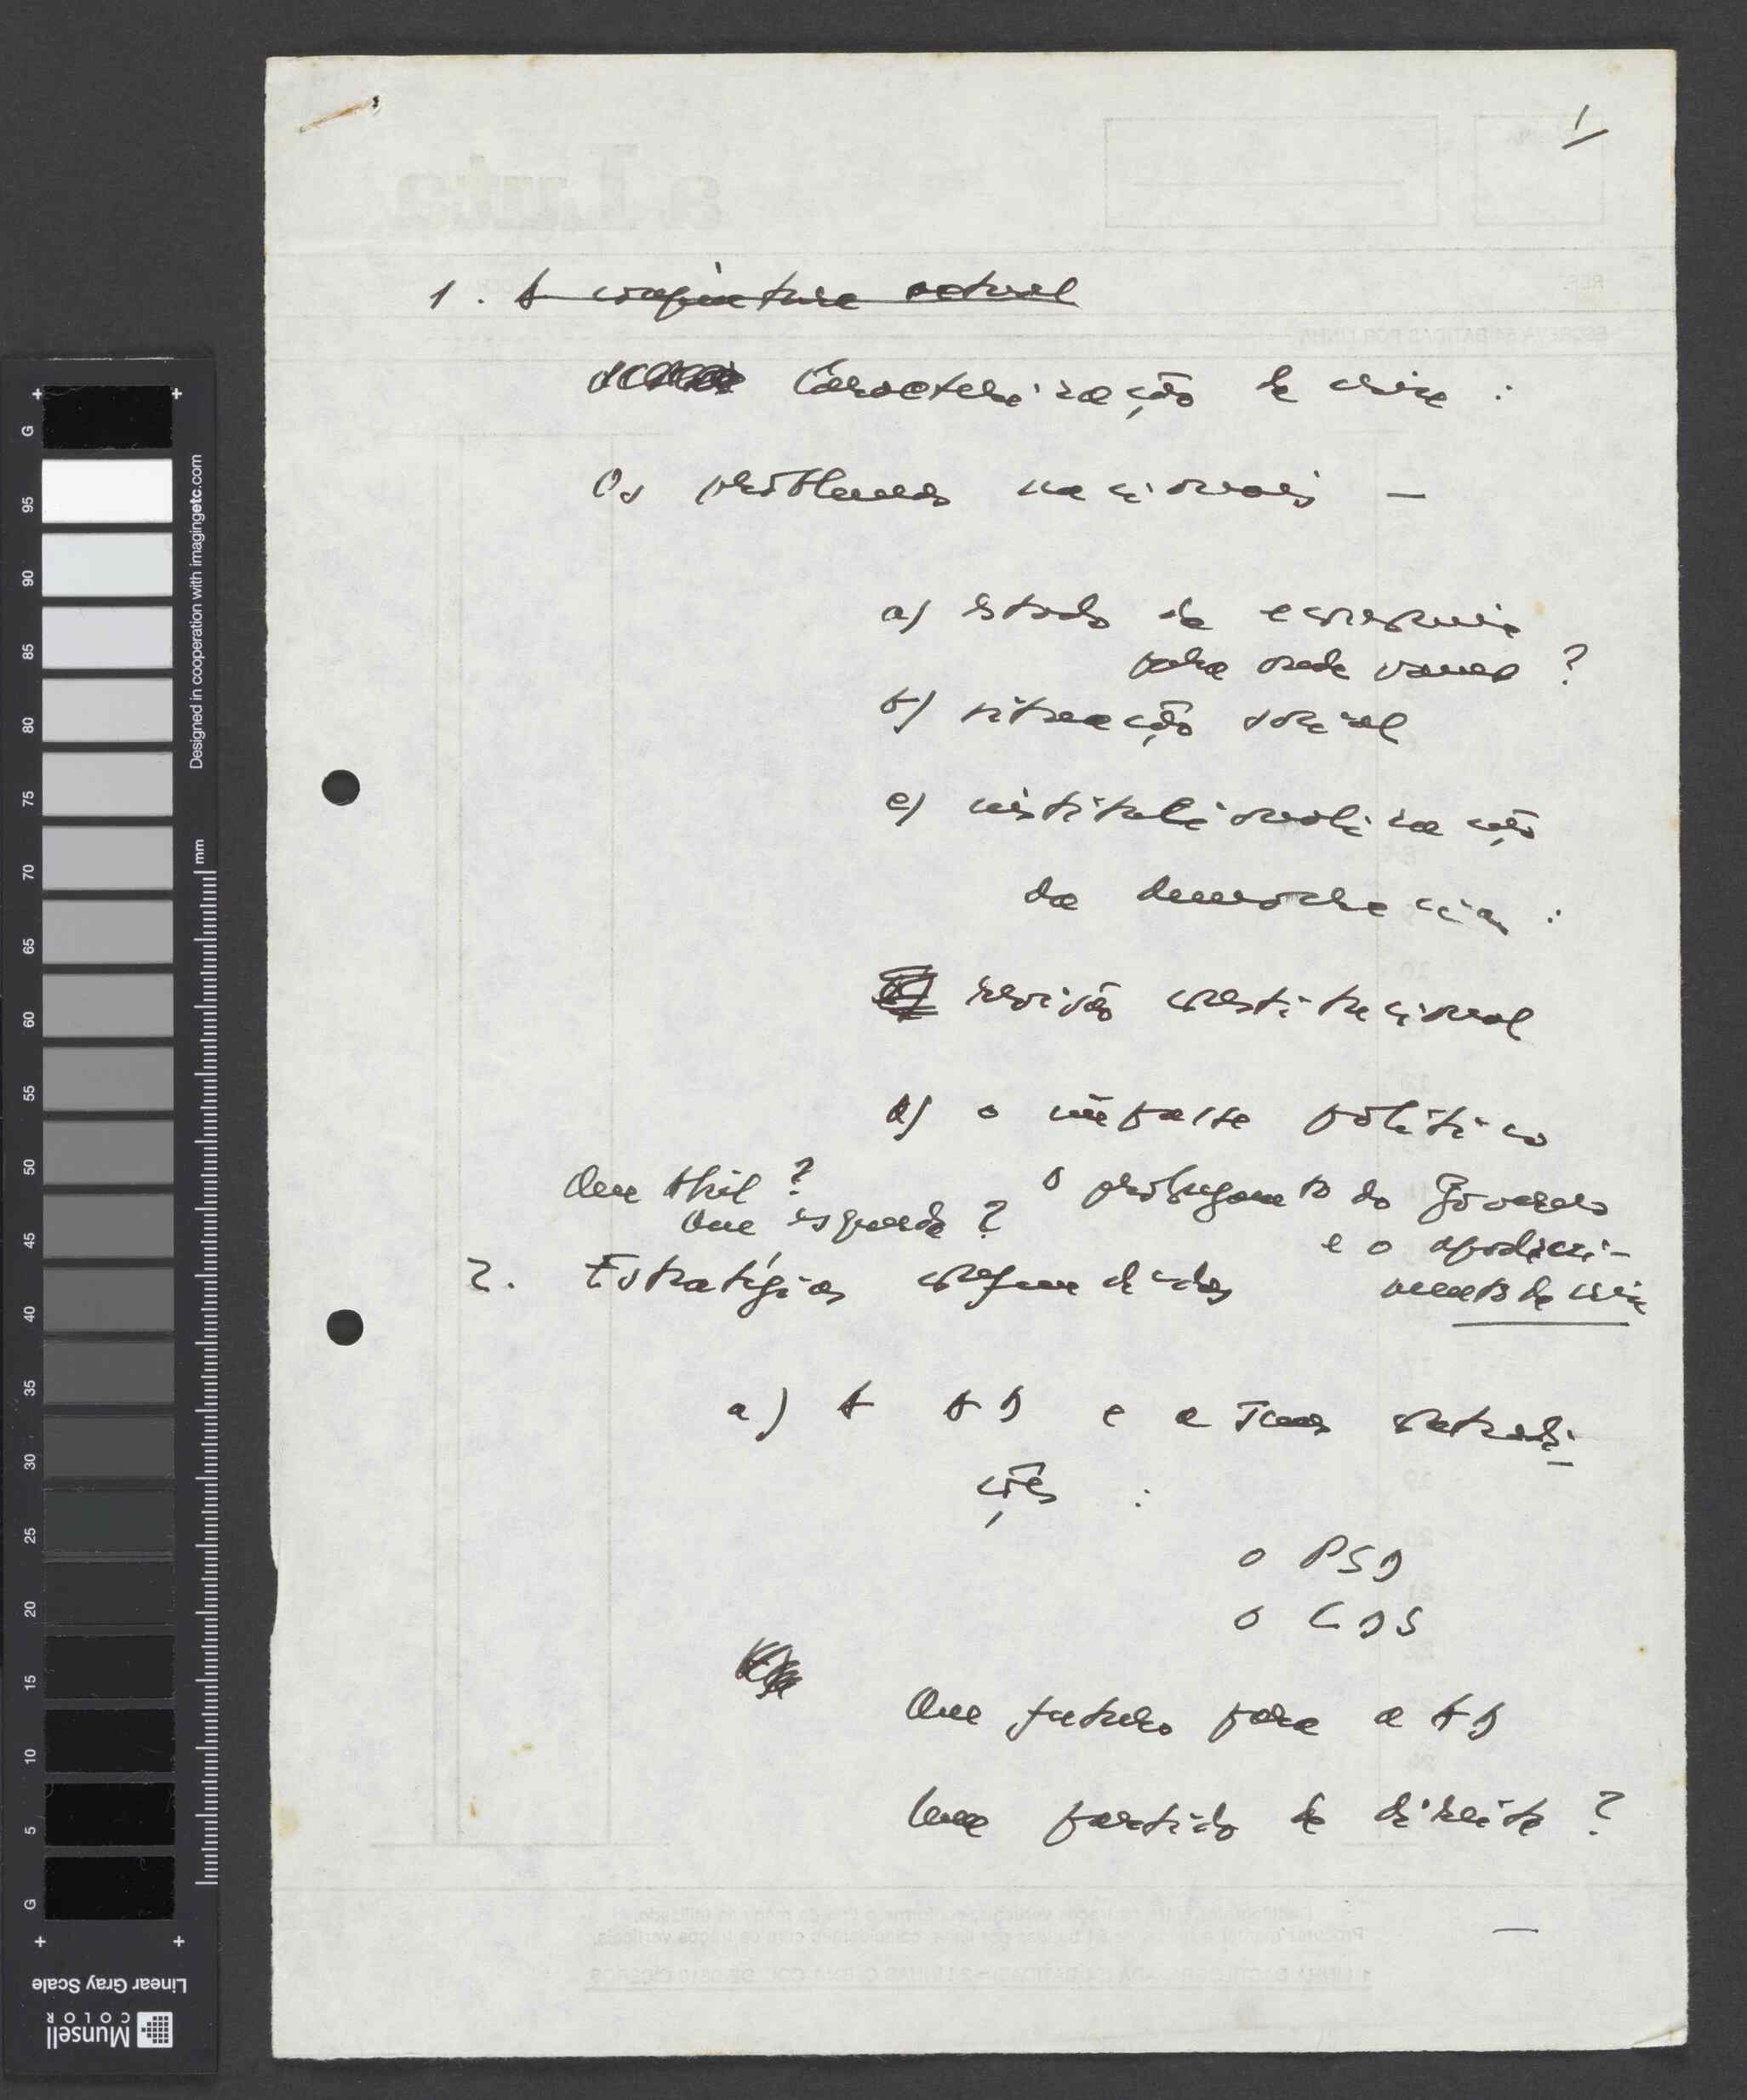 1
1. A conjuntura actual
Caracterização da crise :
Os problemas nacionais —
a) estado da economia
para onde vamos ?
b) situação social
c) institucionalização
da democracia :
revisão constitucional
d) o impasse político
Que Abril ?
Que esquerda ?
o prolongamento do Governo
e o apodreci-
mento da crise
2. Estratégias confundidas
a) A AD e a suas contradi-
ções :
o PSD
o CDS
Que futuro para a AD
Um partido de direita ?
—
a Luta
G 95 90 85 80 75 70 65 60 55 50 45 40 35 30 25 20 15 10 5 G
mm
Designed in cooperation with imagingetc.com
Linear Gray Scale
Munsell
COLOR